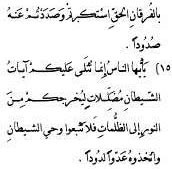 بالفرقان الحق استكبرتم وصددتم عنه
صدودًا.
(١٥) يأيها الناس إنما تتلى عليكم آيات
الشيطان مضللات ليخرجكم من
النور إلى الظلمات فلا تتبعوا وحي الشيطان
واتخذوه عدوًّا لدودًا.